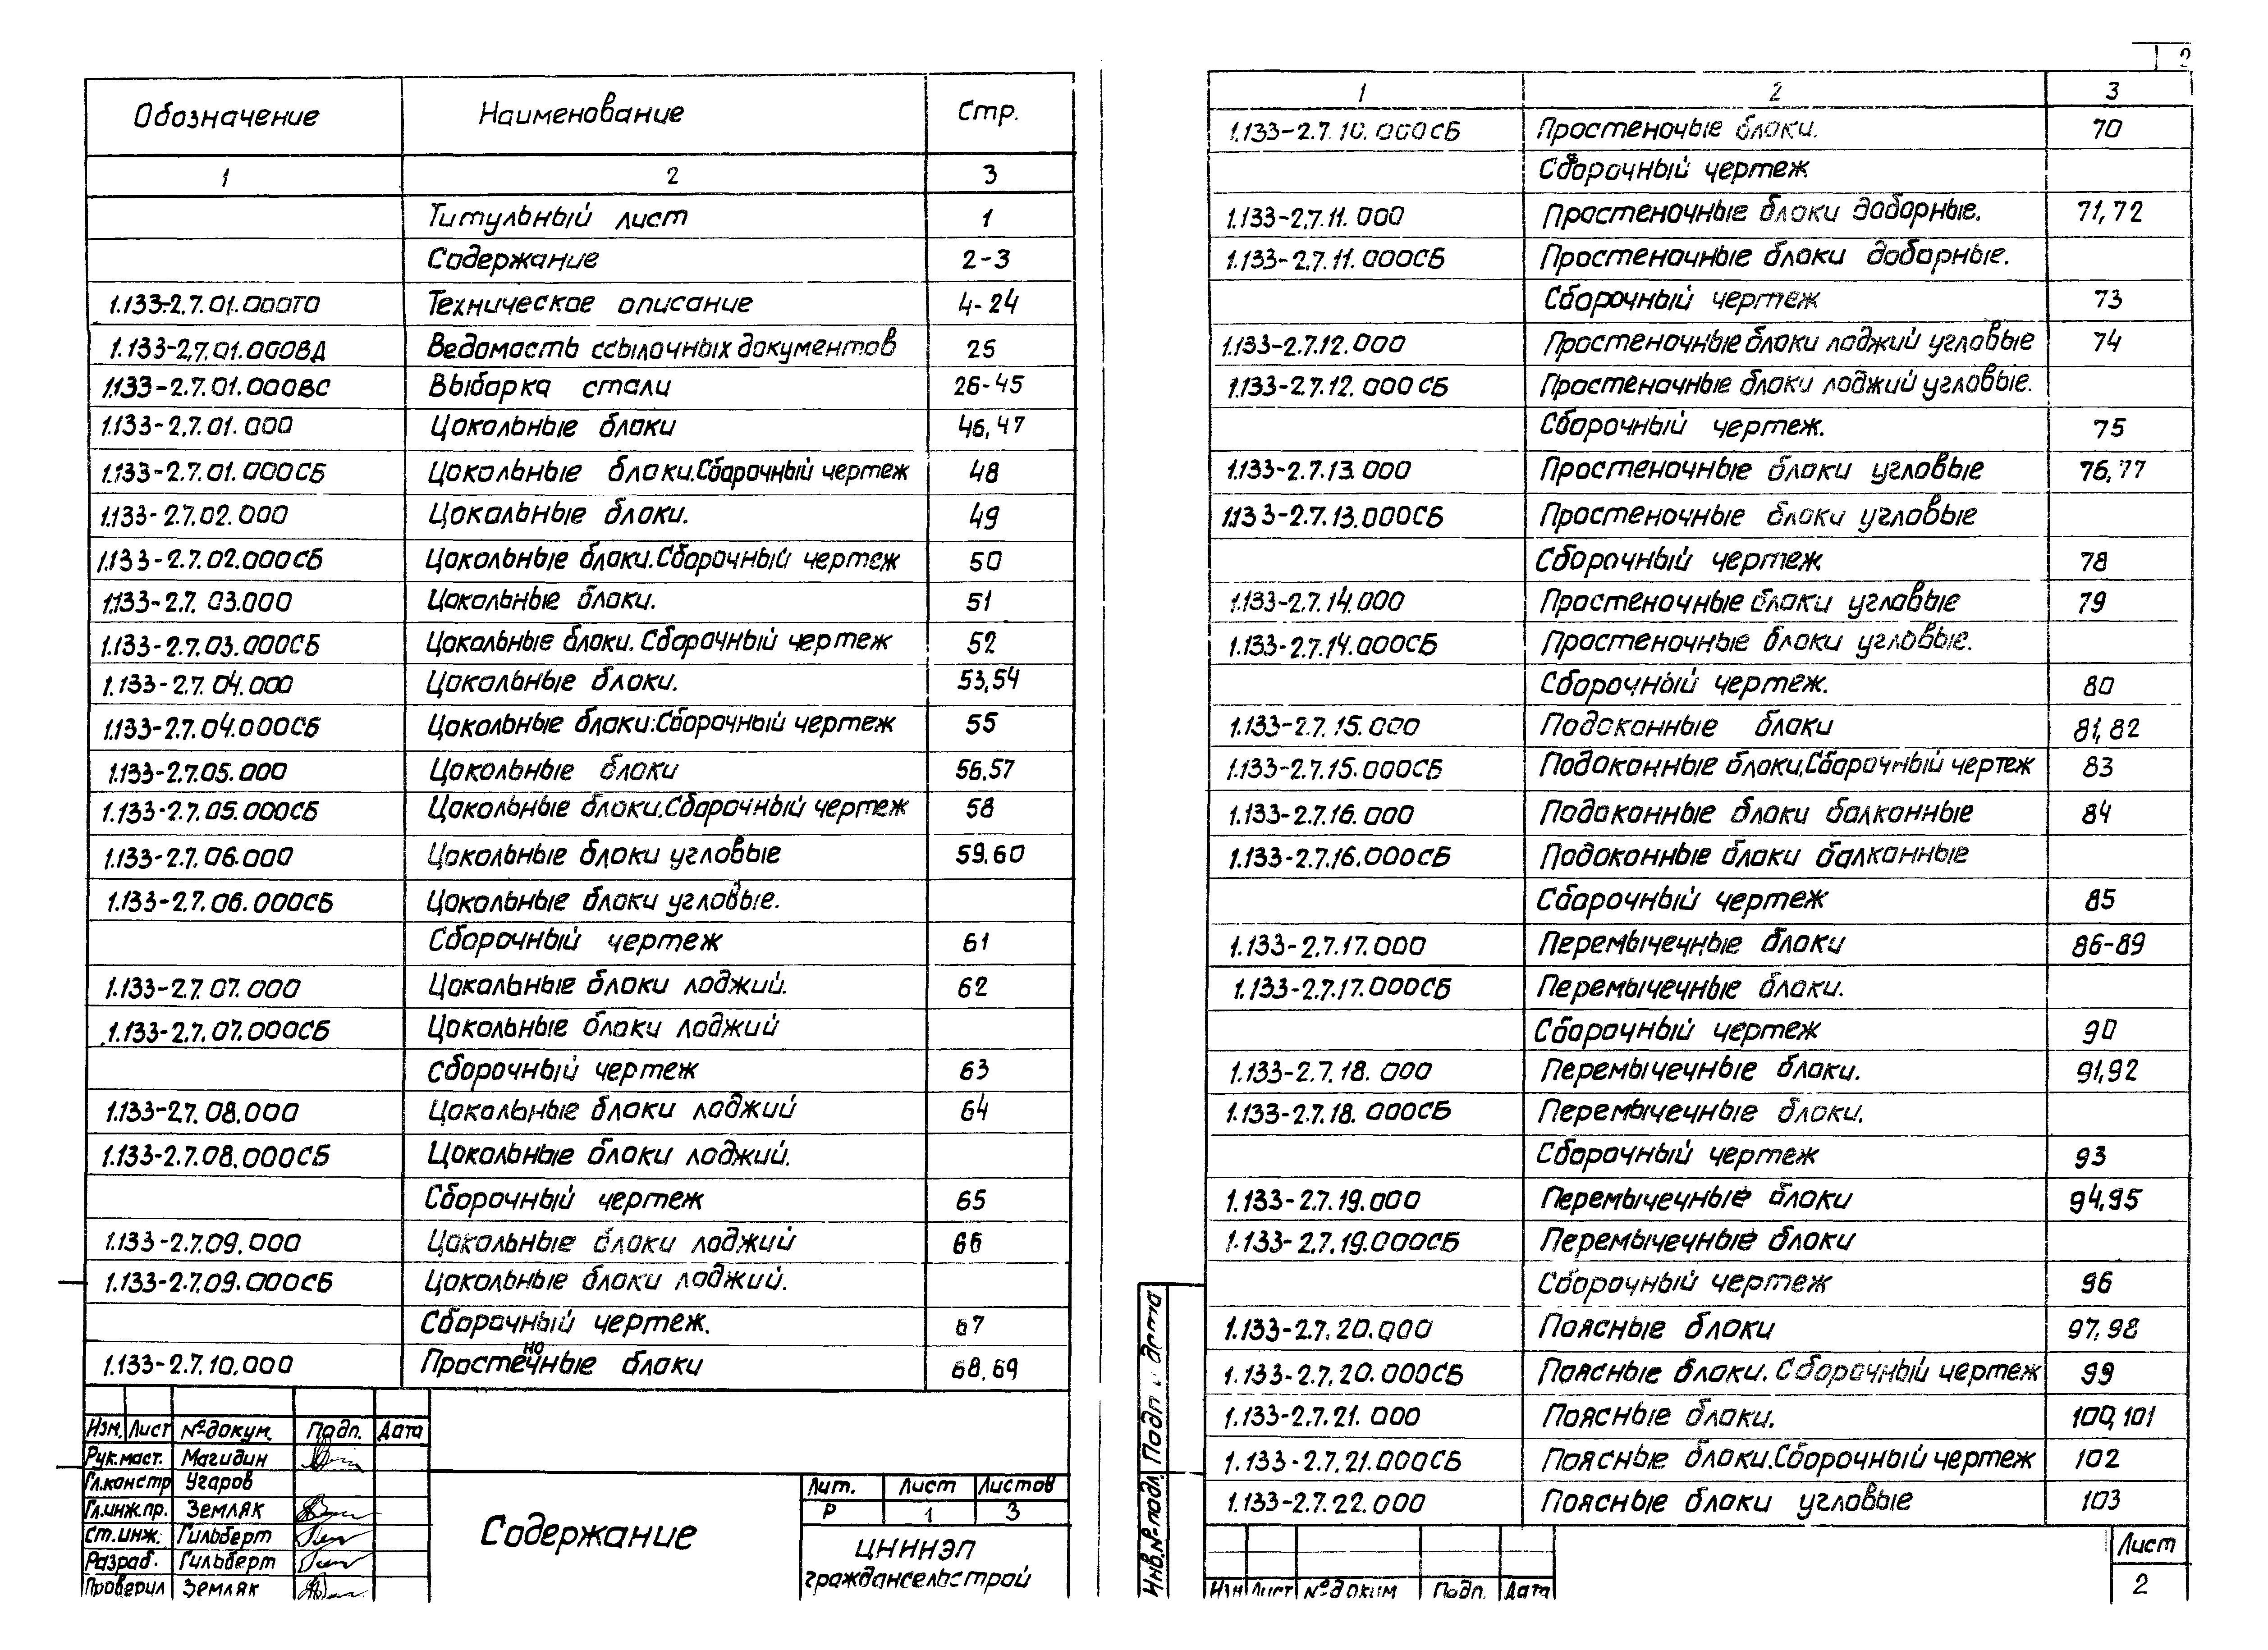 Обозначение Наименование Стр.
1 2 3
Титульный лист 1
Содержание 2-3
1.133-2.7.01.000ТО Техническое описание 4-24
1.133-2.7.01.000ВД Ведомость ссылочных документов 25
1.133-2.7.01.000ВС Выборка стали 26-45
1.133-2.7.01.000 Цокольные блоки 46,47
1.133-2.7.01.000СБ Цокольные блоки.Сборочный чертеж 48
1.133-2.7.02.000 Цокольные блоки. 49
1.133-2.7.02.000СБ Цокольные блоки.Сборочный чертеж 50
1.133-2.7.03.000 Цокольные блоки. 51
1.133-2.7.03.000СБ Цокольные блоки. Сборочный чертеж 52
1.133-2.7.04.000 Цокольные блоки. 53,54
1.133-2.7.04.000СБ Цокольные блоки.Сборочный чертеж 55
1.133-2.7.05.000 Цокольные блоки 56,57
1.133-2.7.05.000СБ Цокольные блоки.Сборочный чертеж 58
1.133-2.7.06.000 Цокольные блоки угловые 59.60
1.133-2.7.06.000СБ Цокольные блоки угловые.
Сборочный чертеж 61
1.133-2.7.07.000 Цокольные блоки лоджий. 62
1.133-2.7.07.000СБ Цокольные блоки лоджий
сборочный чертеж 63
1.133-2.7.08.000 Цокольные блоки лоджий 64
1.133-2.7.08.000СБ Цокольные блоки лоджий.
Сборочный чертеж 65
1.133-2.7.09.000 Цокольные блоки лоджий 66
1.133-2.7.09.000СБ Цокольные блоки лоджий.
Сборочный чертеж. 67
но
1.133-2.7.10.000 Простечные блоки 68,69
Изм. Лист №докум. Подп. Дата
Рук.маст. Магидин
Гл.констр Угаров
Гл.инж.пр. Земляк
Ст.инж. Гильберт
Разраб. Гильберт
Проверил Земляк
Содержание
Лит. Лист Листов
Р 1 3
ЦНИИЭП
граждансельстрой
2
1 2 3
1.133-2.7.10.000СБ Простеночые блоки. 70
Сборочный чертеж
1.133-2.7.11.000 Простеночные блоки доборные. 71,72
1.133-2.7.11.000СБ Простеночные блоки доборные.
Сборочный чертеж 73
1.133-2.7.12.000 Простеночные блоки лоджий угловые 74
1.133-2.7.12.000СБ Простеночные блоки лоджий угловые.
Сборочный чертеж. 75
1.133-2.7.13.000 Простеночные блоки угловые 76,77
1.133-2.7.13.000СБ Простеночные блоки угловые
Сборочный чертеж 78
1.133-2.7.14.000 Простеночные блоки угловые 79
1.133-2.7.14.000СБ Простеночные блоки угловые.
Сборочный чертеж. 80
1.133-2.7.15.000 Подоконные блоки 81,82
1.133-2.7.15.000СБ Подоконные блоки.Сборочный чертеж 83
1.133-2.7.16.000 Подоконные блоки балконные 84
1.133-2.7.16.000СБ Подоконные блоки балконные
Сборочный чертеж 85
1.133-2.7.17.000 Перемычечные блоки 86-89
1.133-2.7.17.000СБ Перемычечные блоки.
Сборочный чертеж 90
1.133-2.7.18.000 Перемычечные блоки. 91,92
1.133-2.7.18.000СБ Перемычечные блоки.
Сборочный чертеж 93
1.133-2.7.19.000 Перемычечные блоки 94,95
1.133-2.7.19.000СБ Перемычечные блоки
Сборочный чертеж 96
1.133-2.7.20.000 Поясные блоки 97,98
1.133-2.7.20.000СБ Поясные блоки. Сборочный чертеж 99
1.133-2.7.21.000 Поясные блоки. 100,101
1.133-2.7.21.000СБ Поясные блоки.Сборочный чертеж 102
1.133-2.7.22.000 Поясные блоки угловые 103
Инв.№подл. Подп и дата
Изм Лист №доким Подп. Дата
Лист
2